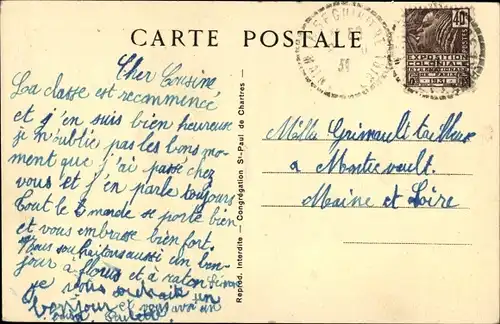 CARTE POSTALE
Cher Cousine
La classe est recommencé
et j'en suis bien heureuse
je n'oublie pas les bons mo-
ment que j'ai passé chez
vous et j'en parle toujours
Tout le monde se porte bien
et vous embrasse bien fort.
Nous souhaitons aussi un bon-
jour à et à raton
je vous souhaite un
bonjour et vous
Paulette
Reprod. Interdite — Congrégation St-Paul de Chartres —
40c
EXPOSITION
COLONIALE
INTERNATIONALE
PARIS
1931
31
Mlle Grimault tailleur
à Montrevault.
Maine et Loire